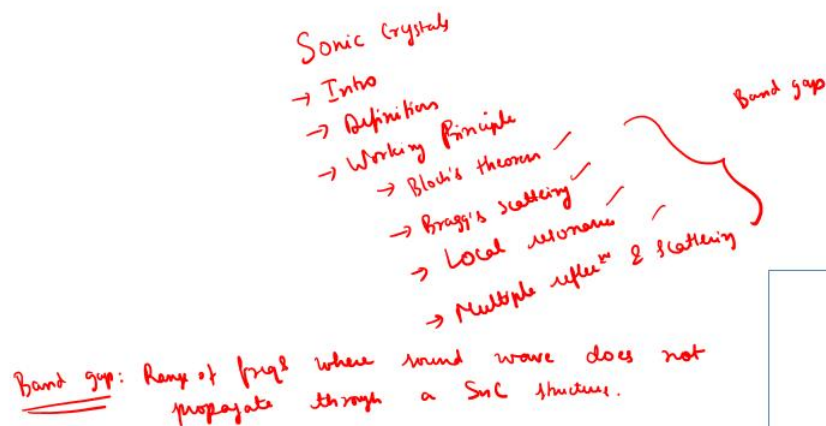 Sonic Crystals
→ Intro
→ Definition
→ Working Principle
→ Bloch's theorem ✓
→ Bragg's scattering ✓
→ Local resonance ✓
→ Multiple reflecⁿ & scattering ✓
Band gap
Band gap: Range of freqs where sound wave does not
propagate through a SnC structure.